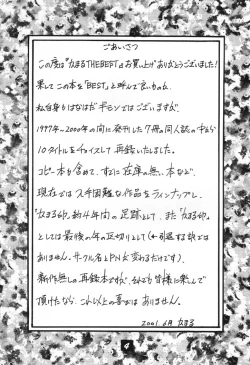 ごあいさつ
この度は『なまるTHE BEST』をお買い上げありがとうございます!
果してこの本を「BEST」と呼んで良いものか、
私自身もはなはだギモンではございますが、
1997年~2000年の間に発刊した7冊の同人誌の中から
10タイトルをチョイスして再録いたしました。
コピー本も含めて、すでに在庫の無い本など、
現在では入手困難な作品をラインナップし、
約4年間の足跡として、また
としては最後の年の区切りとして(←引退する訳では
ありません。サークル名とPNが変わるだけです)
新作無しの再録本ですが、それでも皆様に楽しんで
頂けたなら、これ以上の喜びはありません。
2001. 6月
4